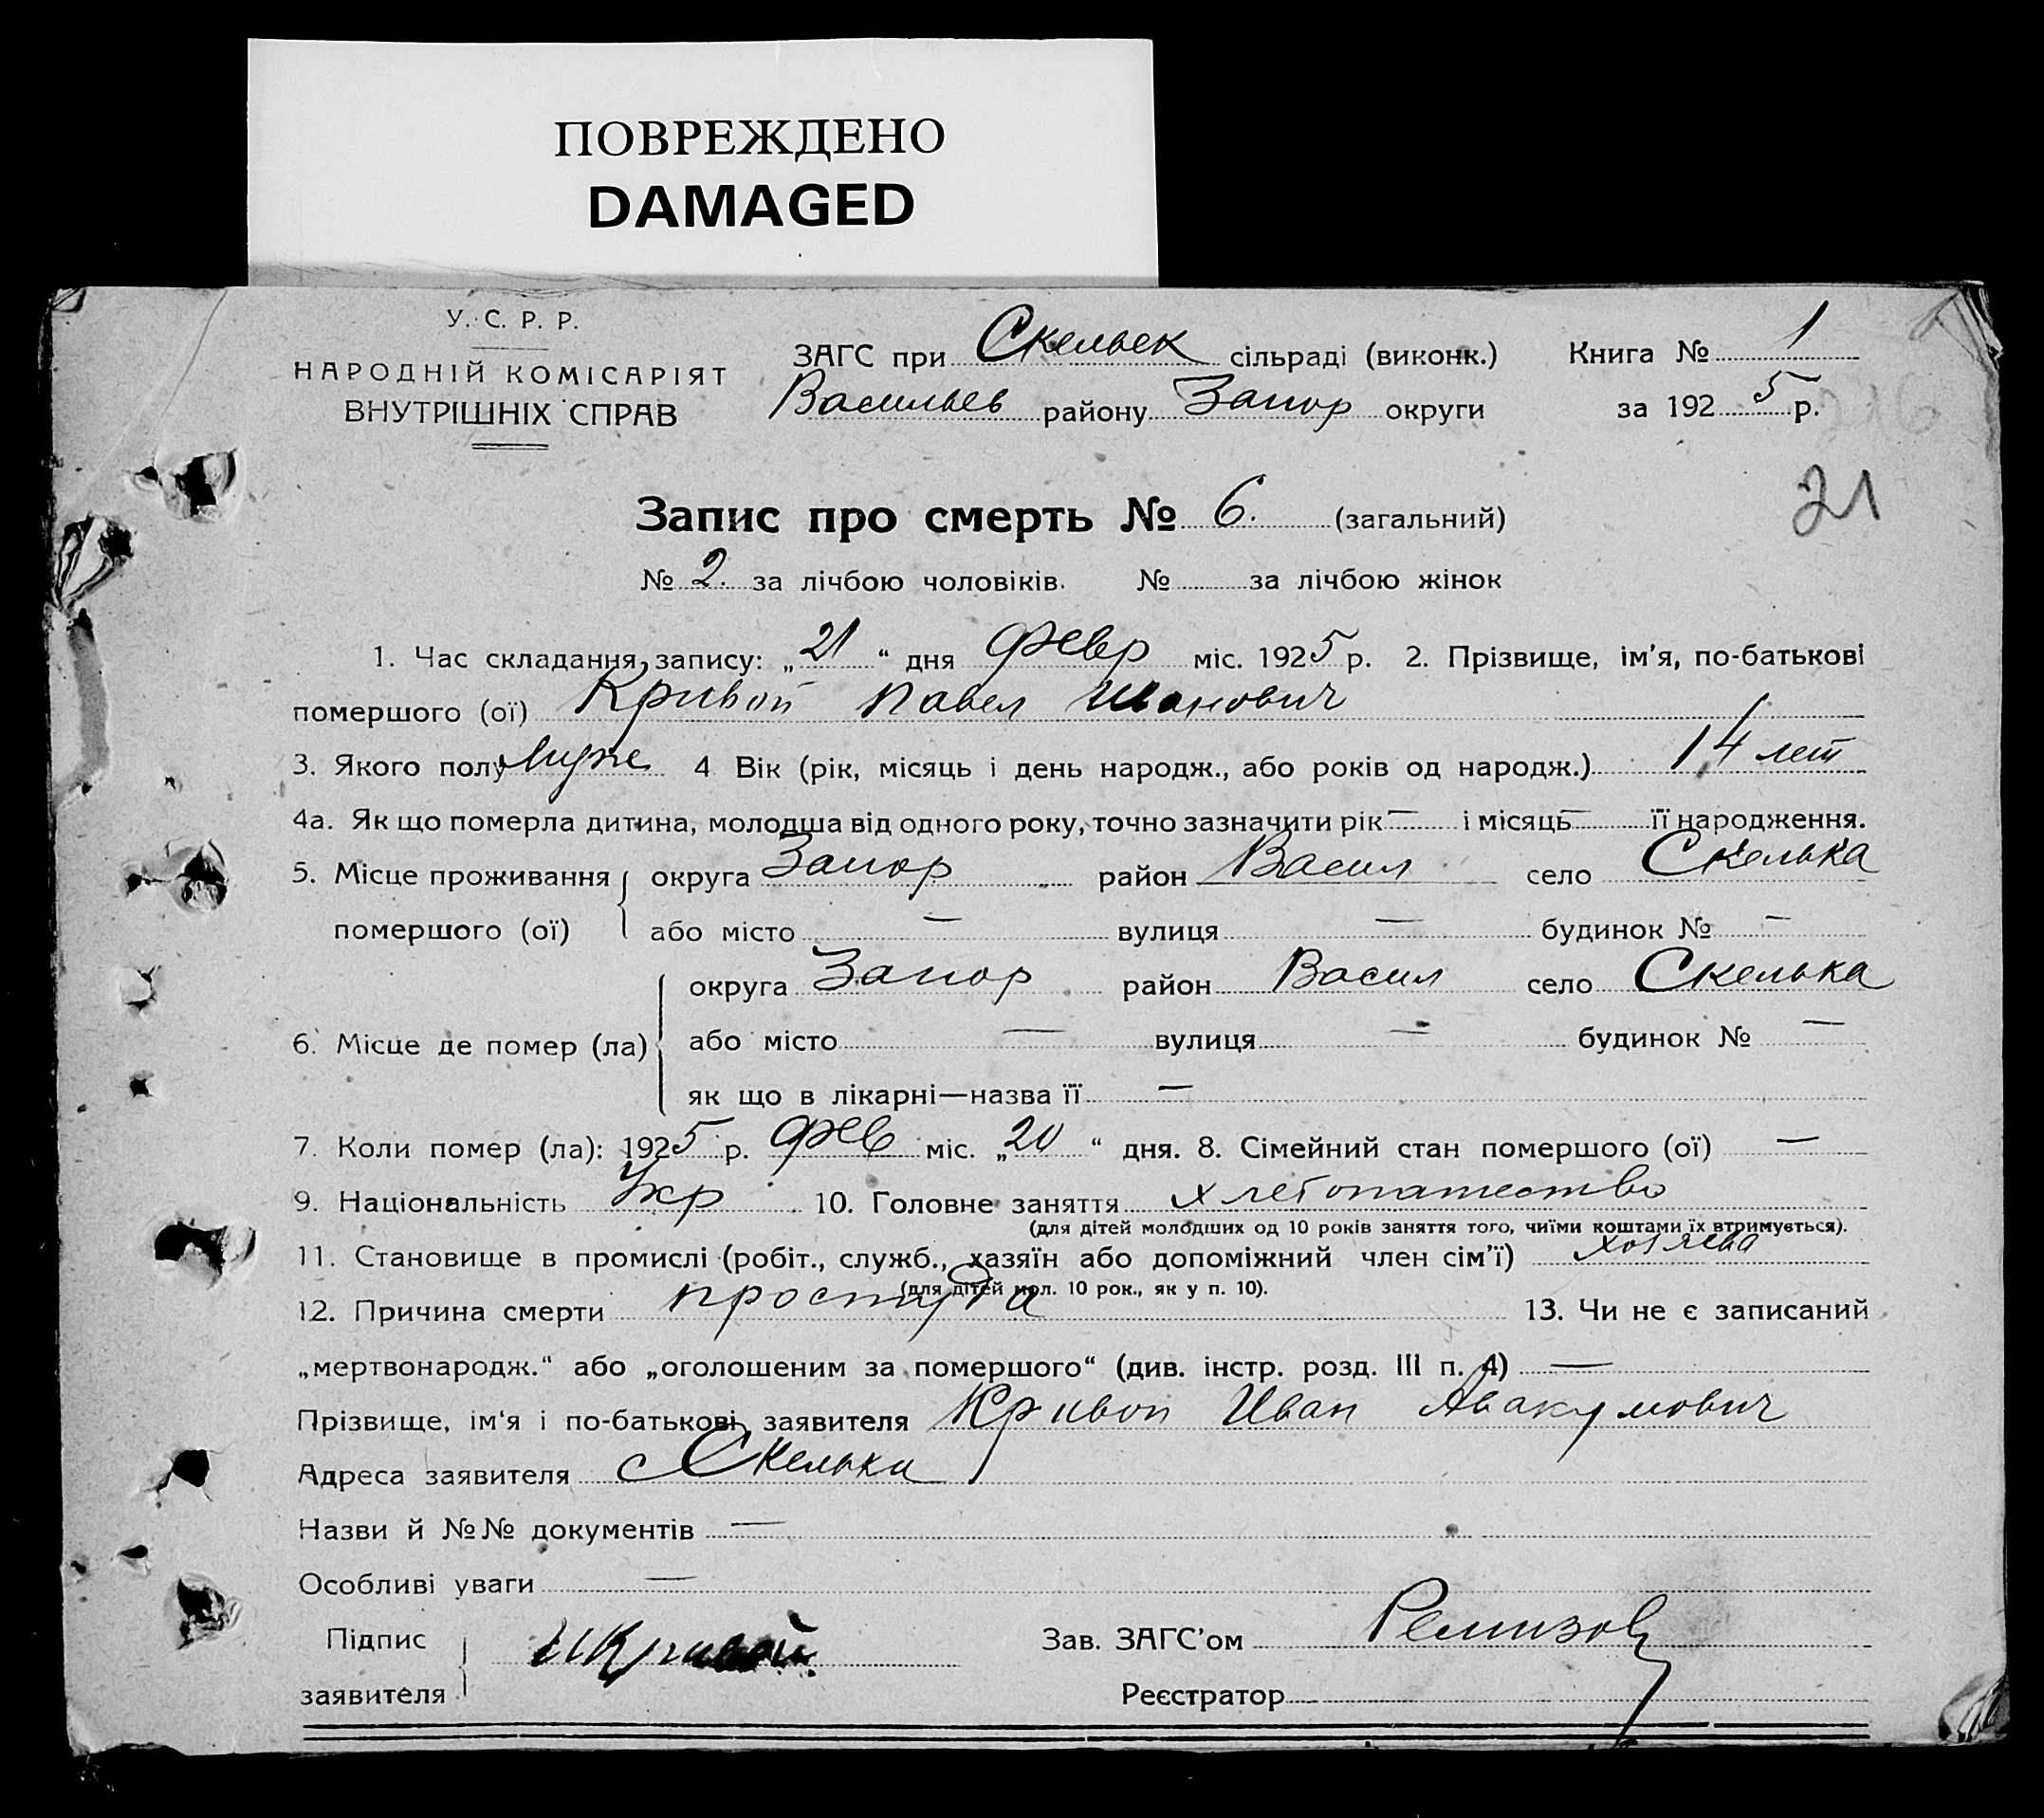 ПОВРЕЖДЕНО
DAMAGED
У. С. Р. Р.
НАРОДНІЙ КОМІСАРІЯТ
ВНУТРІШНІХ СПРАВ
ЗАГС при Скельек сільраді (виконк.) Книга № 1
Васильев району Запор округи за 1925 р.
21
Запис про смерть № 6. (загальний)
№ 2. за лічбою чоловіків. № за лічбою жінок
1. Час складання запису: „21“ дня Февр міс. 1925 р. 2. Прізвище, ім'я, по-батькові
помершого (ої) Кривой Павел Иванович
3. Якого полу Муже 4 Вік (рік, місяць і день народж., або років од народж.) 14 лет
4а. Як що померла дитина, молодша від одного року, точно зазначити рік — і місяць — її народження.
5. Місце проживання округа Запор район Васил село Скелька
помершого (ої) або місто — вулиця — будинок № —
округа Запор район Васил село Скелька
6. Місце де помер (ла) або місто — вулиця — будинок № —
як що в лікарні—назва її —
7. Коли помер (ла): 1925 р. Фев міс. „20“ дня. 8. Сімейний стан помершого (ої) —
9. Національність Укр 10. Головне заняття хлебопашество
(для дітей молодших од 10 років заняття того, чиїми коштами їх втримується).
11. Становище в промислі (робіт., служб., хазяїн або допоміжний член сім'ї) хозяева
(для дітей мол. 10 рок., як у п. 10).
12. Причина смерти простуда 13. Чи не є записаний
„мертвонародж.“ або „оголошеним за помершого“ (див. інстр. розд. III п. 4) —
Прізвище, ім'я і по-батькові заявителя Кривой Иван Авакумович
Адреса заявителя с Скельки
Назви й №№ документів —
Особливі уваги —
Підпис заявителя ИКривой Зав. ЗАГС'ом Ремизов
Реєстратор